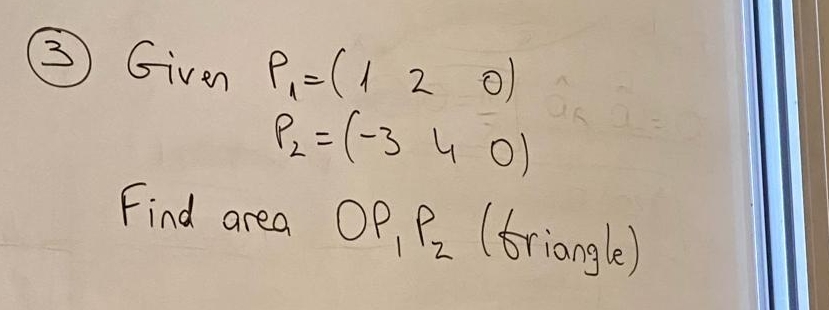 ③ Given P₁=(1 2 0)
P₂=(-3 4 0)
Find area OP₁P₂ (triangle)